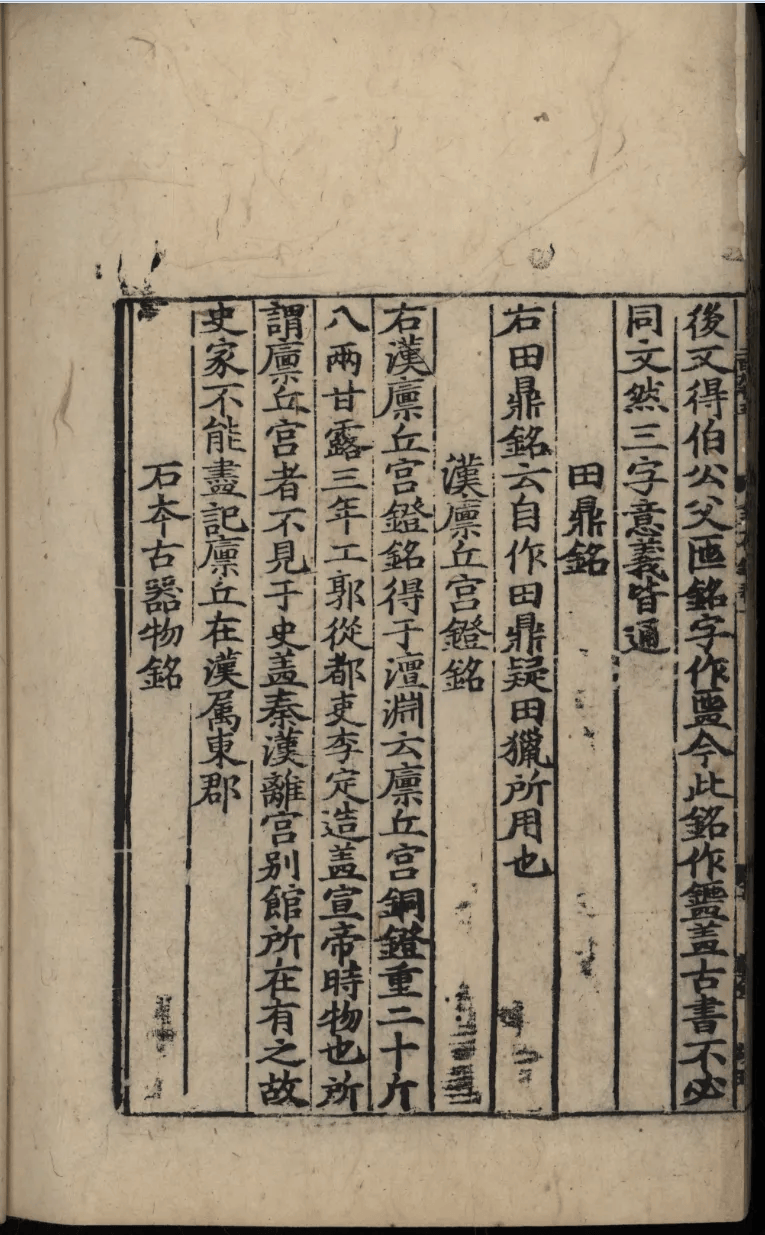 後又得伯公父匜銘字作𥂔今此銘作䥯盖古書不必
同文然三字意義皆通
田鼎銘
右田鼎銘云自作田鼎疑田獵所用也
漢廪丘宫鐙銘
右漢廪丘宫鐙銘得于澶淵云廪丘宫銅鐙重二十斤
八兩甘露三年工郭從都吏李定造盖宣帝時物也所
謂廪丘宫者不見于史盖秦漢離宫别館所在有之故
史家不能盡記廪丘在漢属東郡
石夲古器物銘